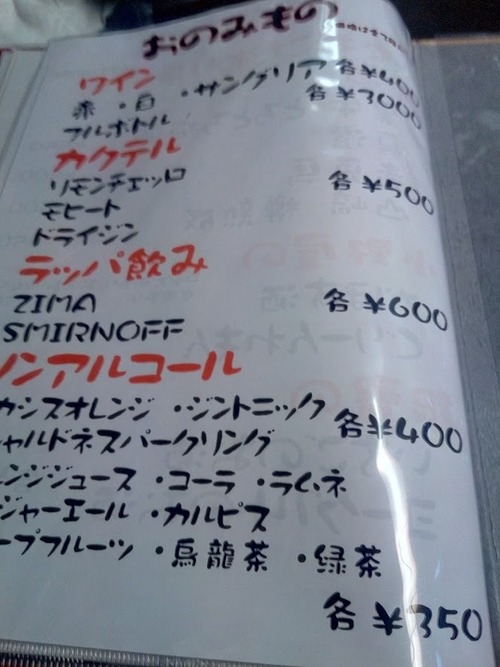 おのみもの
ワイン
赤・白 ・サングリア 各¥400
フルボトル 各¥3000
カクテル
リモンチェッロ 各¥500
モヒート
ドライジン
ラッパ飲み
ZIMA 各¥600
SMIRNOFF
ノンアルコール
カシスオレンジ ・ジントニック 各¥400
ャルドネスパークリング
ンジジュース ・コーラ ・ラムネ
ジャーエール ・カルピス
ープフルーツ ・烏龍茶 ・緑茶
各¥350